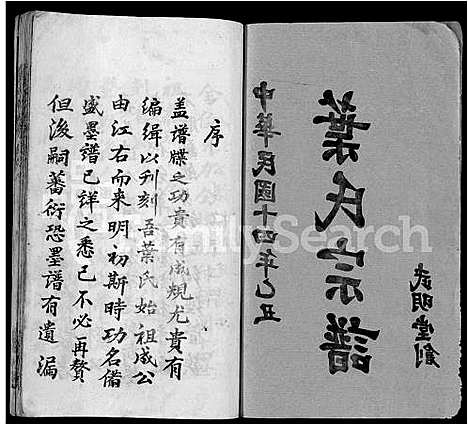 武明堂創
葉氏宗譜
中華民國十四年乙丑
序
蓋譜牒之功貴有成規尤貴有
編緝以刋刻吾葉氏始祖成公
由江右而来明初斯時功名備
盛墨譜已詳之悉已不必再贅
但後嗣蕃衍恐墨譜有遺漏
FamilySearch